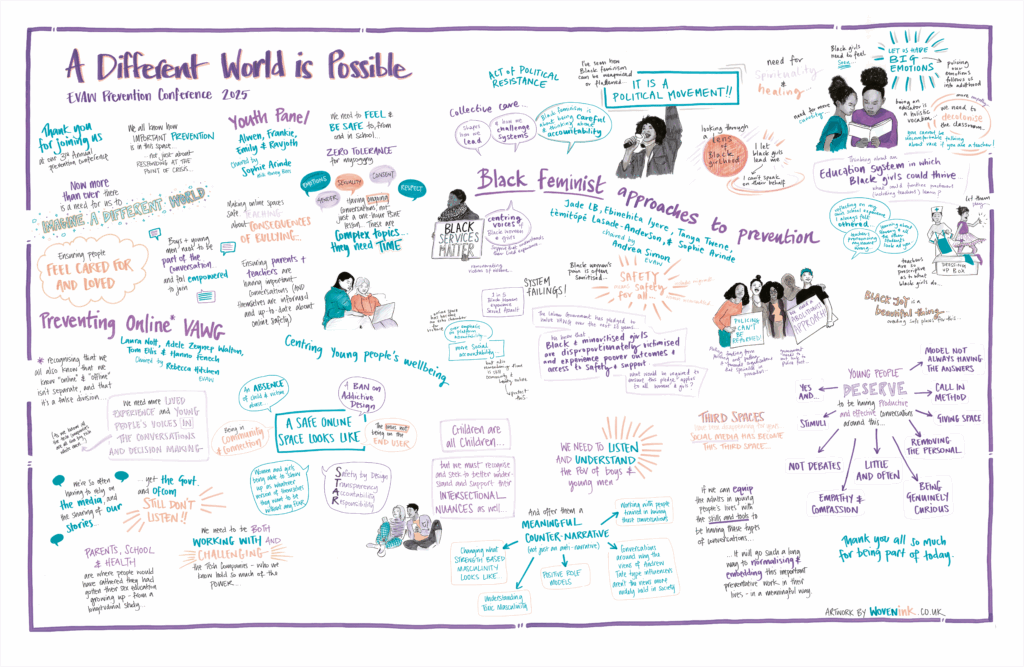 A Different World is Possible
EVAW Prevention Conference 2025
Thank you
for joining us
at our 3rd Annual
prevention conference
We all know how
IMPORTANT PREVENTION
is in this space...
not just about
RESPONDING AT THE
POINT OF CRISIS...
Now more
than ever there
is a need for us to
IMAGINE A DIFFERENT WORLD
Ensuring people
FEEL CARED FOR
AND LOVED
Boys + young
men need to be
part of the
conversation
and feel empowered
to join
Youth Panel
Emily & Ravjoth
Chaired by
Sophie Arinde
We need to FEEL &
BE SAFE to, from
and in school.
ZERO TOLERANCE
for misogyny
EMOTIONS
SEXUALITY
CONSENT
GENDER
RESPECT
Having ongoing
conversations, not
just a one-hour PSHE
lesson. These are
Complex topics -
they need TIME
Making online spaces
safe. TEACHING
ABOUT THE
CONSEQUENCES
OF BULLYING...
Ensuring parents +
teachers are
having important
conversations (AND
themselves are informed
and up-to-date about
online safety)
ACT OF POLITICAL
RESISTANCE
Collective care...
Shapes
how we
lead
& how we
challenge
systems
I've seen how
Black Feminism
can be weaponised
or flattened...
Black Feminism is
about being careful
+ thinking about
accountability
IT IS A
POLITICAL MOVEMENT!!
need for
Spirituality
&
healing
looking through
a
lens
of Black
girlhood
I let
black girls
lead me
I can't speak
on their behalf
Black girls
need to feel
seen...
need for more
curiosity
LET US HAVE
BIG
EMOTIONS
policing
our
emotions
follows us
into adulthood
being an
educator is
a holistic
vocation.
we need to
decolonise
the classroom...
you cannot be
uncomfortable talking
about race if you are a teacher!
Thinking about an
Education System in which
Black girls could thrive...
Black Feminist approaches to prevention
Jade LB, Ebinehita Iyere, Tanya Twene,
témítópé Lasade-Anderson, & Sophie Arinde
Chaired by
Andrea Simon
EVAW
BLACK
SERVICES
MATTER
centring
voices of
Black women
& girls
SYSTEM
FAILINGS!
1 in 5
Black women
experience
Sexual Assault
Black women's
pain is often
Sanitised...
SAFETY
means safety
for all...
The Labour Government has pledged to
halve VAWG over the next 10 years...
We know that
Black & minoritised girls
are disproportionately victimised
and experience poorer outcomes &
access to safety & support
What would be required to
ensure this pledge applies
to all women & girls?
more Social
accountability...
POLICING
CAN'T
BE
REPLACING!
reflecting on my
own school experience
I always felt
othered
teachers
are so
prescriptive as
to what
black girls do...
BLACK JOY is a
beautiful thing...
creating safe places for this...
Preventing Online* VAWG
Laura Nott, Adele Zeynep Walton,
Tom Ellis & Hanno Fenech
Chaired by Rebecca Hitchen
EVAW
Centring Young people's wellbeing
* recognising that we
all also know that
"online" & "offline"
isn't separate, and that
it's a false division...
We need more LIVED
EXPERIENCE and YOUNG
PEOPLE'S VOICES IN
THE CONVERSATIONS
AND DECISION MAKING-
We're so often
having to rely on
the media, and
the sharing of our
stories...
...yet the Govt.
and Ofcom
STILL DON'T
LISTEN!!
PARENTS, SCHOOL
& HEALTH
are where people would
have rathered they had
gotten their sex education
growing up - from a
longitudinal study...
We need to be BOTH
WORKING WITH AND
CHALLENGING
the Tech Companies - who we
know hold so much of the
POWER.
An ABSENCE
of child & violence
abuse
A BAN ON
Addictive
Design
A SAFE ONLINE
SPACE LOOKS LIKE
Being in
Community
& Connection
The onus not
being on the
END USER
Women and girls
being able to show
up as whatever
version of themselves
they want to be
without any fear
Safety by Design
Transparency
Accountability
Responsibility
Children are
all Children...
but we must recognise
and seek to better under-
stand and support their
INTERSECTIONAL
NUANCES as well...
WE NEED TO LISTEN
AND UNDERSTAND
the POV of boys &
young men!
And offer them a
MEANINGFUL
COUNTER-NARRATIVE
(not just an anti-narrative)
Working with people
trained in having
these conversations
Changing what
STRENGTH BASED
MASCULINITY
LOOKS LIKE
Understanding
Toxic Masculinity
POSITIVE ROLE
MODELS
Conversations
around why the
views of Andrew
Tate type influencers
aren't the views more
widely held in society
THIRD SPACES
SOCIAL MEDIA HAS BECOME
THIS THIRD SPACE...
If we can equip
the adults in young
people's lives with
the skills and tools to
be having those types
of conversations...
...It will go such a long
way to normalising &
embedding this important
preventative work in their
lives - in a meaningful way.
YOUNG PEOPLE
DESERVE
to be having productive
and effective conversations
around this...
YES
AND...
STIMULI
NOT DEBATES
EMPATHY &
COMPASSION
LITTLE
AND OFTEN
BEING
GENUINELY
CURIOUS
REMOVING
THE PERSONAL
GIVING SPACE
CALL IN
METHOD
MODEL NOT
ALWAYS HAVING
THE ANSWERS
Thank you all so much
for being part of today.
ARTWORK BY WOVENINK.CO.UK